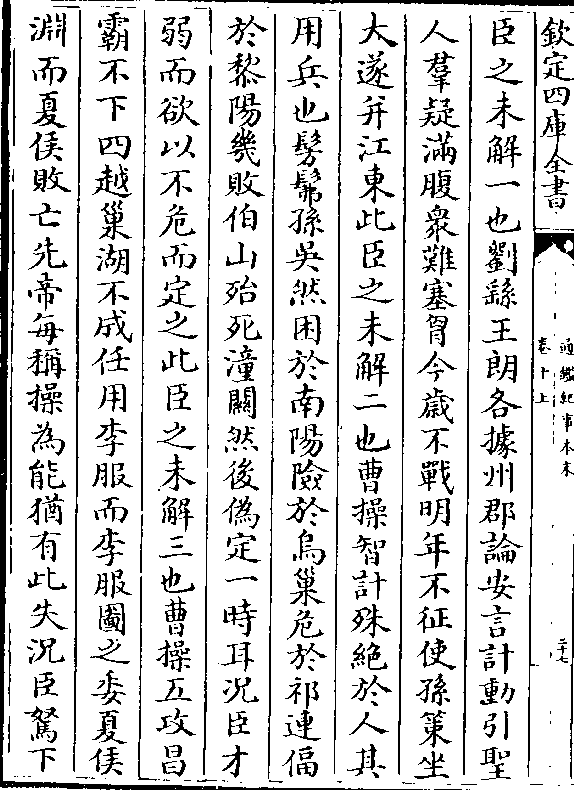 欽定四庫全書
通鑑紀事本末
卷十上
二十七
臣之未解一也劉繇王朗各據州郡論安言計動引聖
人羣疑滿腹衆難塞胷今歳不戰明年不征使孫策坐
大遂并江東此臣之未解二也曹操智計殊絶於人其
用兵也髣髴孫吳然困於南陽險於烏巢危於祁連偪
於黎陽幾敗伯山殆死潼關然後偽定一時耳況臣才
弱而欲以不危而定之此臣之未解三也曹操五攻昌
霸不下四越巢湖不成任用李服而李服圖之委夏侯
淵而夏侯敗亡先帝毎稱操為能猶有此失況臣駑下